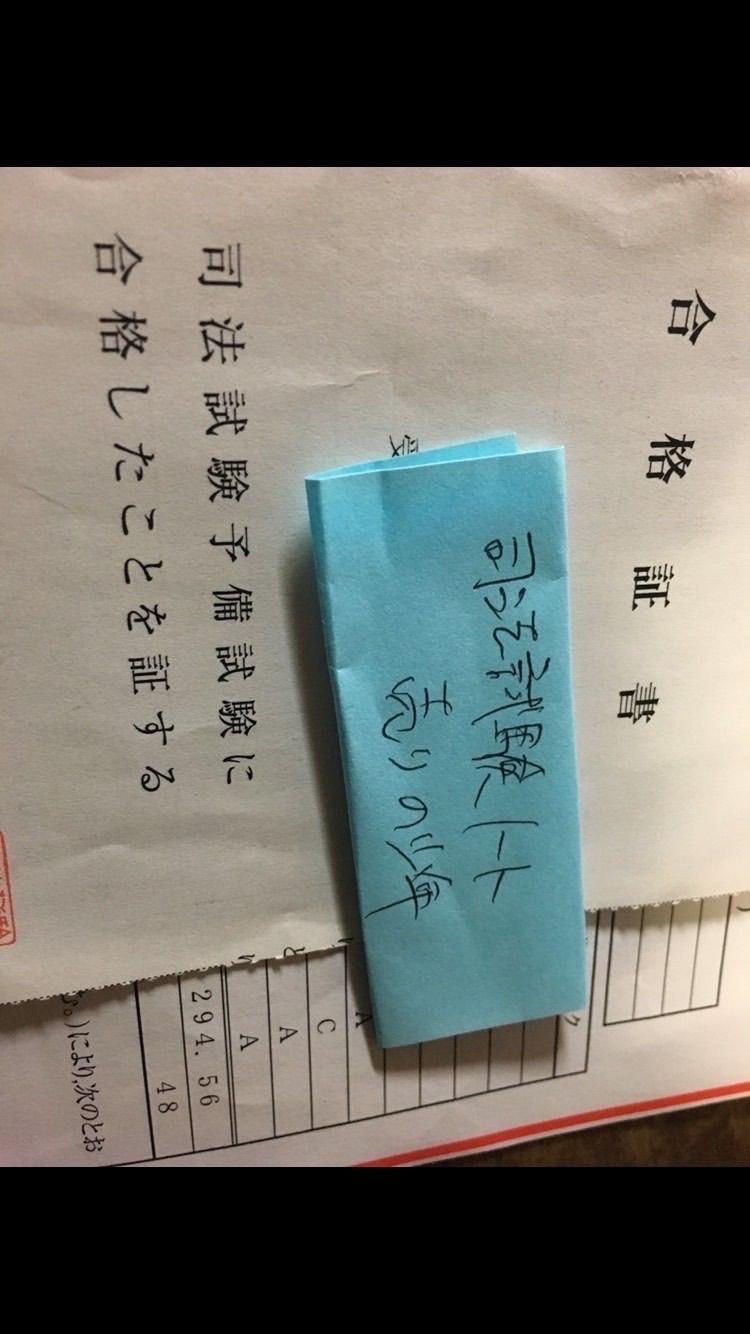 合格証書
受
司法試験ノート
売りの少年
司法試験予備試験に
合格したことを証する
ク
A
C
A
A
294.56
48
む。)により、次のとお